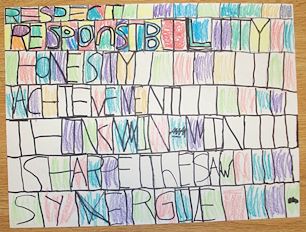 RESPECT
RESPONSIBILITY
HONESTY
ACHIEVEMENT
THINKWIN-WIN
SHARPETHESAW
SYNERGIE